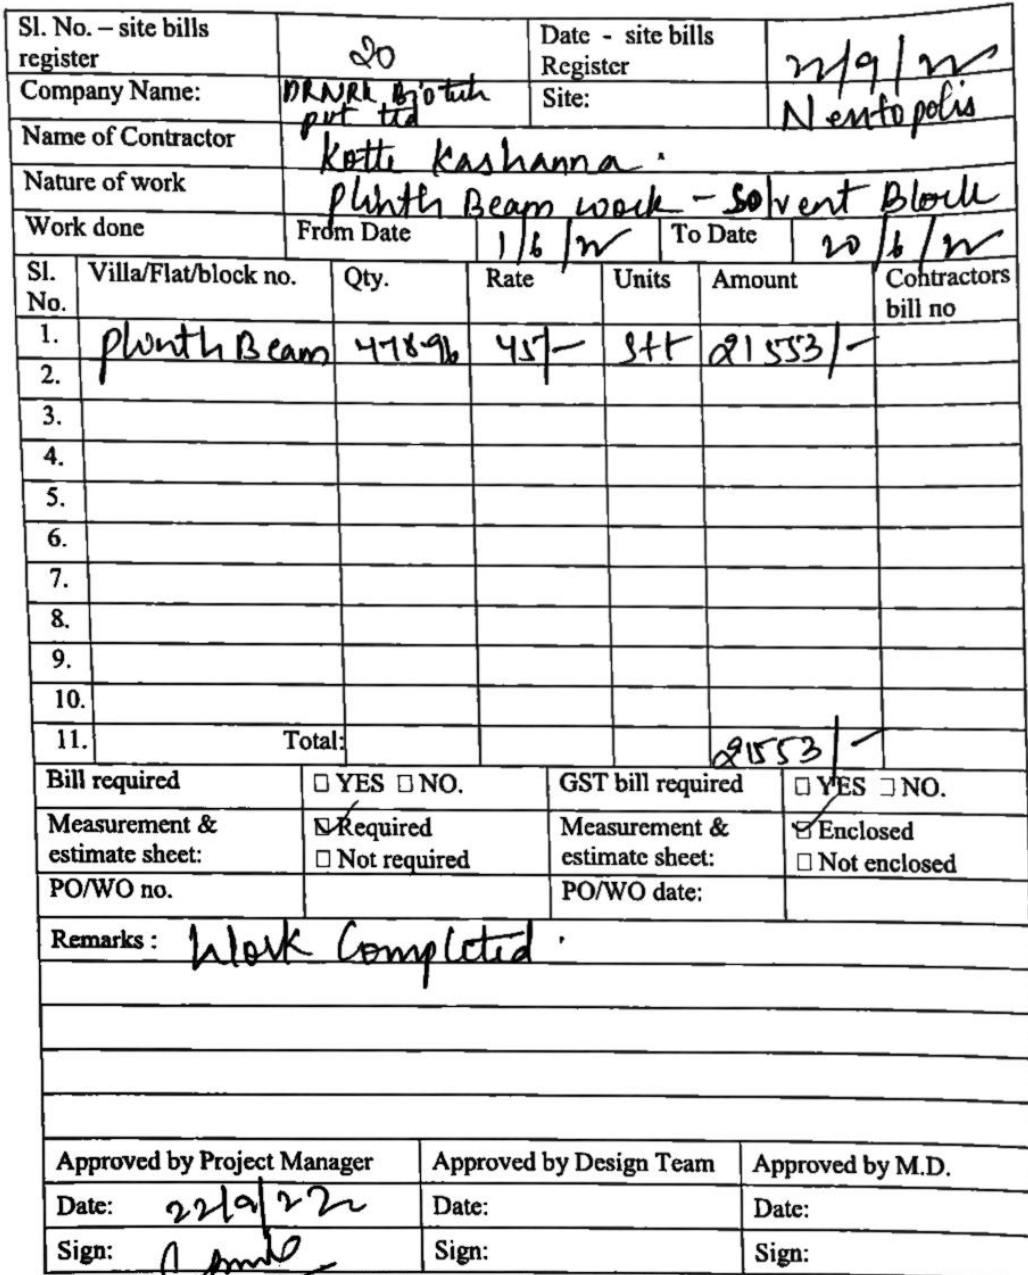 Sl. No. – site bills register 20 Date - site bills Register 22/9/22
Company Name: DRNRK Biotech pvt ltd Site: Nentopolis
Name of Contractor Kotte Kashanna.
Nature of work Plinth Beam work - Solvent Block
Work done From Date 1/6/22 To Date 20/6/22
Sl. No. Villa/Flat/block no. Qty. Rate Units Amount Contractors bill no
1. Plinth Beam 478.96 45/- Sft 21553/-
2.
3.
4.
5.
6.
7.
8.
9.
10.
11. Total: 21553/-
Bill required □ YES □ NO. GST bill required □ YES □ NO.
Measurement & estimate sheet: ☑ Required □ Not required Measurement & estimate sheet: ☑ Enclosed □ Not enclosed
PO/WO no. PO/WO date:
Remarks : Work Completed.
Approved by Project Manager Approved by Design Team Approved by M.D.
Date: 22/9/22 Date: Date:
Sign: Sign: Sign: